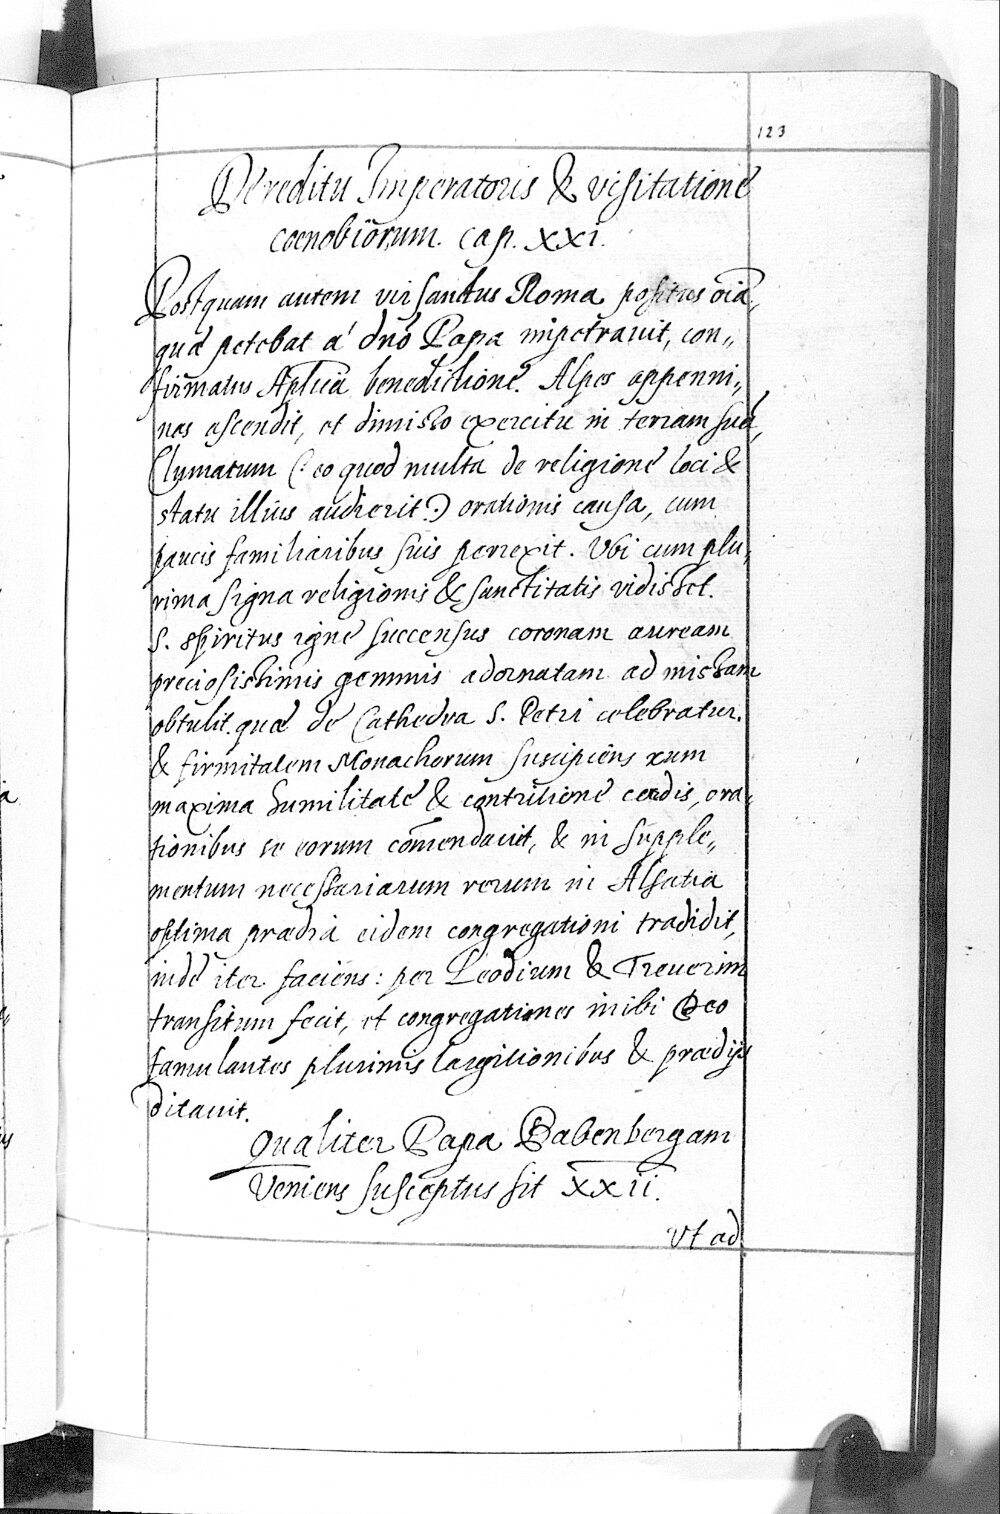 123
De reditu Imperatoris & visitatione
coenobiorum. cap. XXI.
Postquam autem vir sanctus Roma positus oīa,
quæ petebat a' dn̄o Papa impetravit, con„
firmatus Aplīca benedictione. Alpes appenni„
nas ascendit, et dimisso exercitu in terram suā,
Clumatum (: eo quod multa de religione loci &
statu illius audierit:) orationis causa, cum
paucis familiaribus suis perrexit. Vbi cum plu„
rima signa religionis & sanctitatis vidisset.
S. spiritus igne succensus coronam auream
preciosissimis gemmis adornatam ad missam
obtulit. quæ de Cathedra S. Petri celebratur.
& firmitatem Monachorum suscipiens cum
maxima humilitate & contritione cordis, ora„
tionibus se eorum com̄endavit, & in supple„
mentum necessariarum rerum in Alsatia
optima prædia eidem congregationi tradidit,
inde iter faciens: per Leodium & Treverim
transitum fecit, et congregationes inibi Deo
famulantes plurimis largitionibus & prædijs
ditavit.
Qualiter Papa Babenbergam
Veniens susceptus sit XXII.
Vt ad